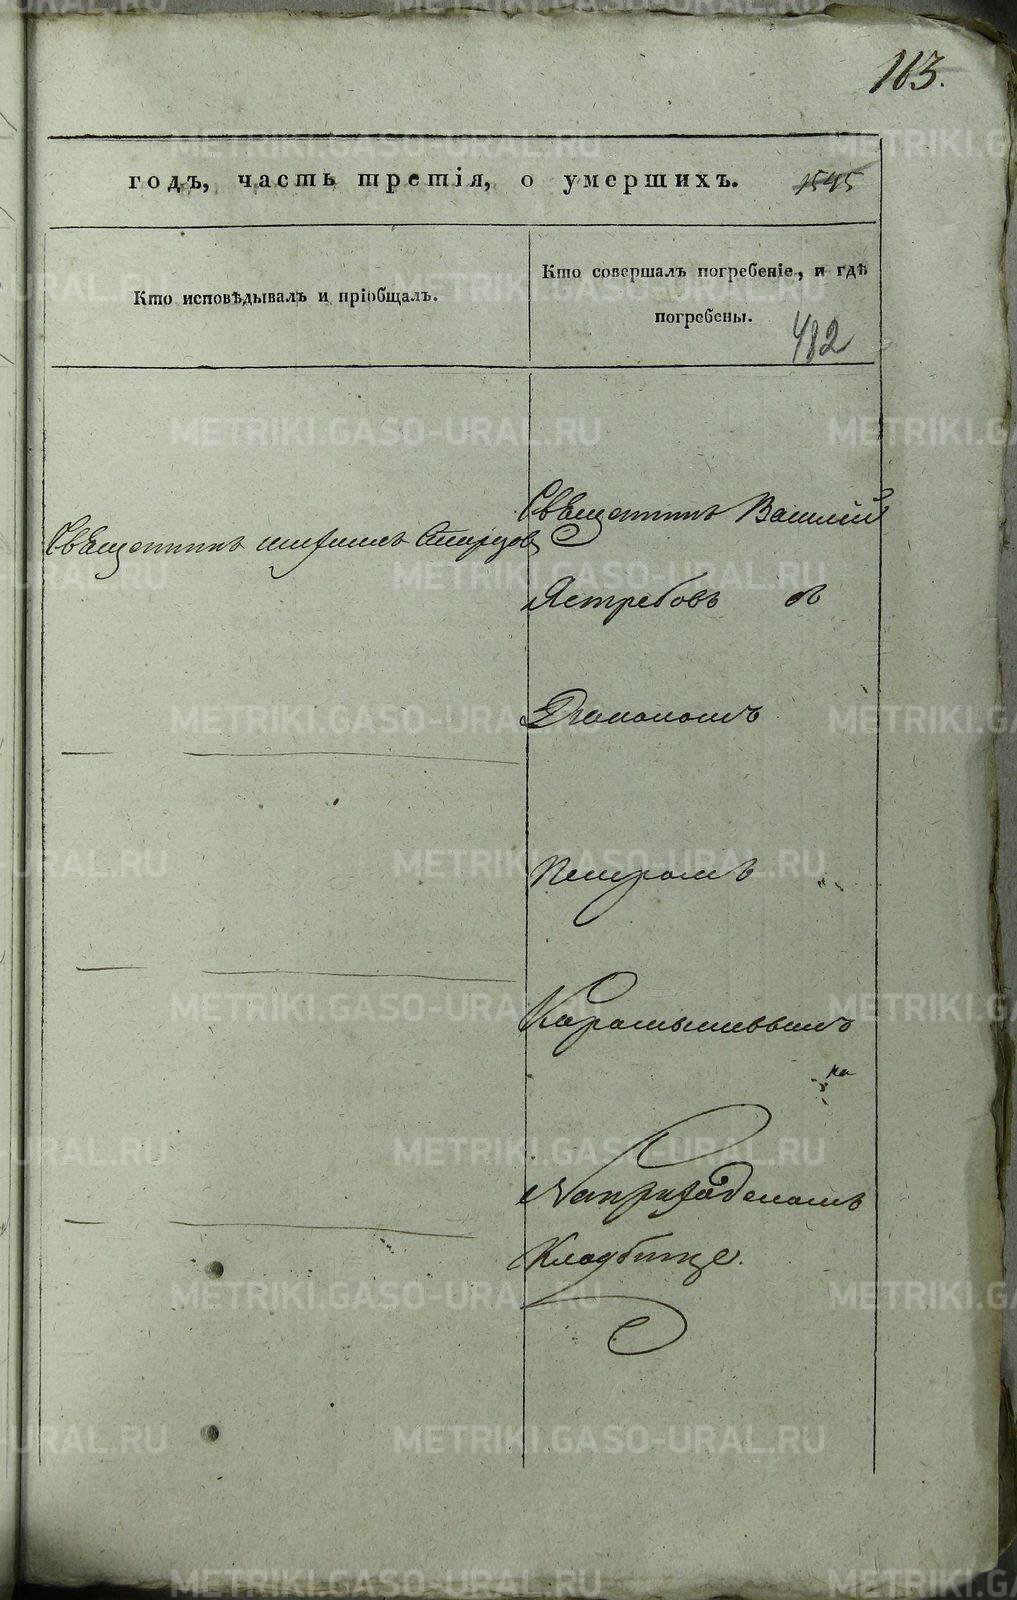 113.
годъ, часть третія, о умершихъ. 1545
Кто исповѣдывалъ и пріобщалъ.
Кто совершалъ погребеніе, и гдѣ
погребены.
482
Священникъ Старцовъ
Священникъ Василій
Ястребовъ съ
Діакономъ
Петромъ
Карамышевымъ
на
Кладбище.
METRIKI.GASO-URAL.RU